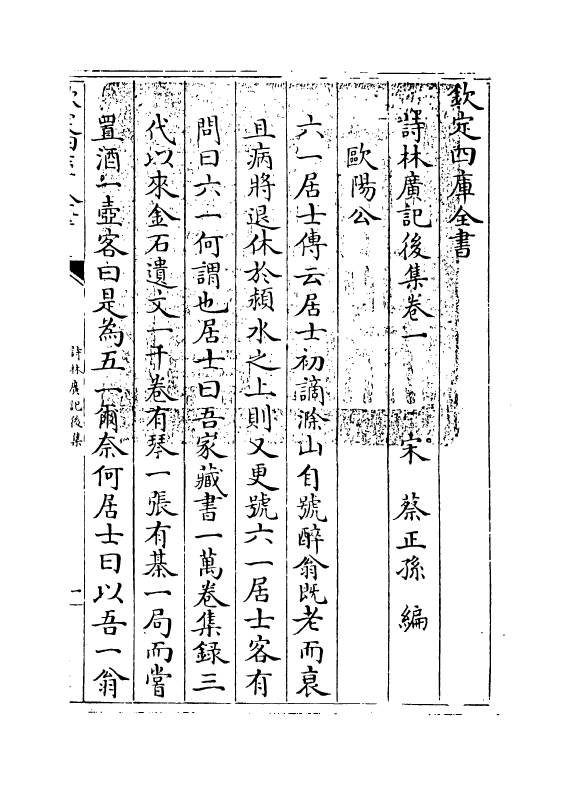 欽定四庫全書
詩林廣記後集卷一
宋 蔡正孫 編
歐陽公
六一居士傳云居士初謫滁山自號醉翁既老而衰
且病將退休於潁水之上則又更號六一居士客有
問曰六一何謂也居士曰吾家藏書一萬卷集錄三
代以來金石遺文一千卷有琴一張有棊一局而嘗
置酒一壺客曰是為五一爾奈何居士曰以吾一翁
詩林廣記後集